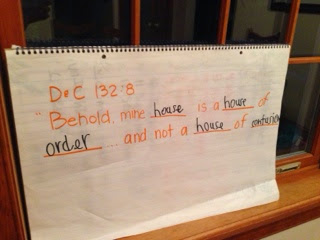 D&C 132:8
"Behold, mine house is a house of
order ... and not a house of confusion